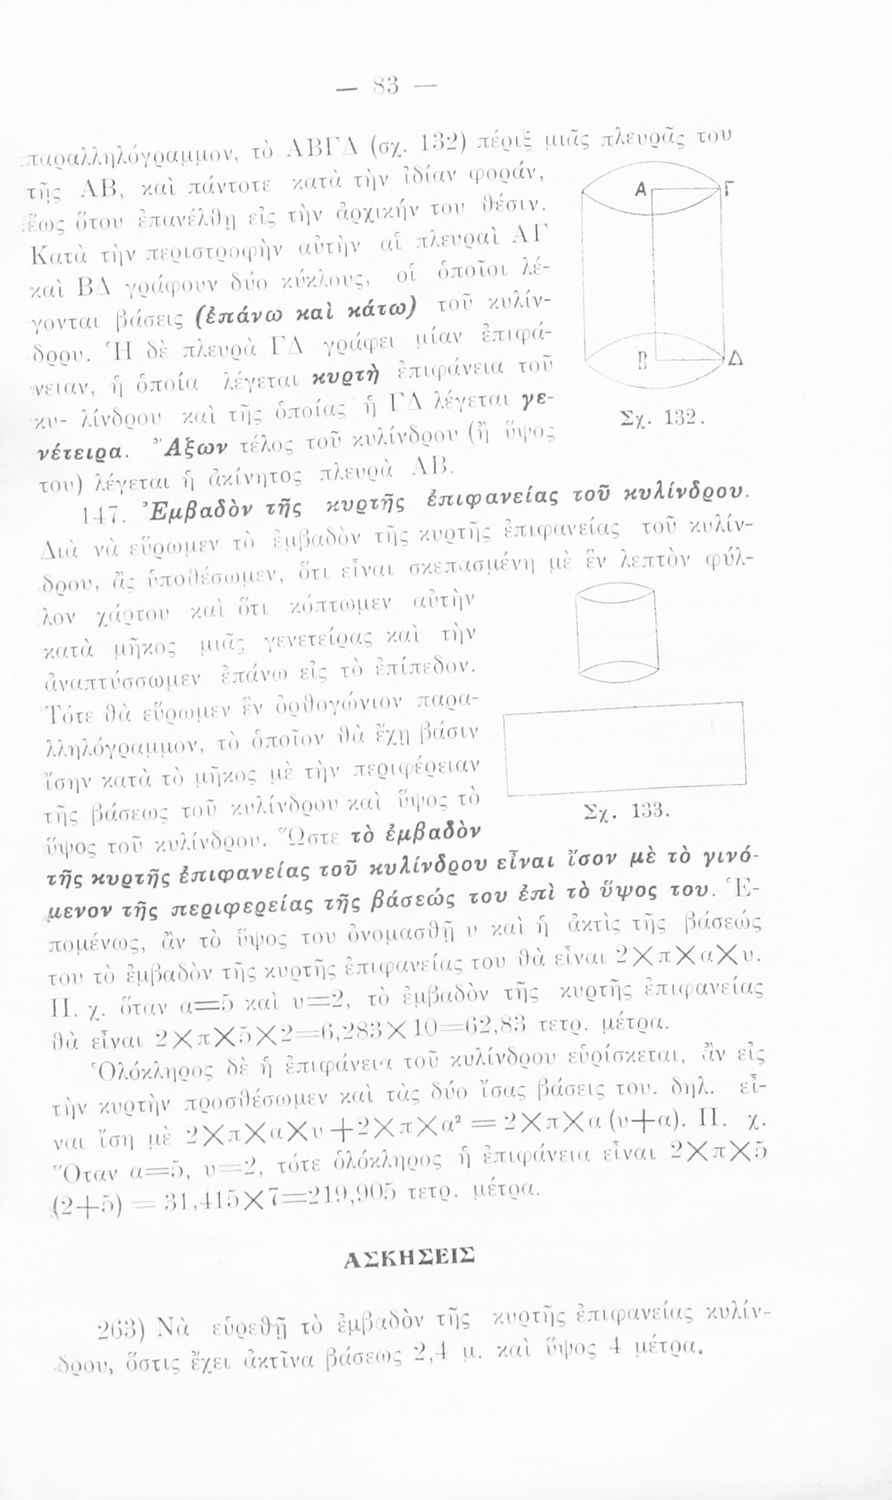 — 83 —
παραλληλόγραμμον, τὸ ΑΒΓΔ (σχ. 132) πέριξ μιᾶς πλευρᾶς του
τῆς ΑΒ, καὶ πάντοτε κατὰ τὴν ἰδίαν φοράν,
ἕως ὅτου ἐπανέλθῃ εἰς τὴν ἀρχικήν του θέσιν.
Κατὰ τὴν περιστροφὴν αὐτὴν αἱ πλευραὶ ΑΓ
καὶ ΒΔ γράφουν δύο κύκλους, οἱ ὁποῖοι λέ-
γονται βάσεις (ἐπάνω καὶ κάτω) τοῦ κυλίν-
δρου. Ἡ δὲ πλευρὰ ΓΔ γράφει μίαν ἐπιφά-
νειαν, ἡ ὁποία λέγεται κυρτὴ ἐπιφάνεια τοῦ
κυ- λίνδρου καὶ τῆς ὁποίας ἡ ΓΔ λέγεται γε-
νέτειρα. Ἄξων τέλος τοῦ κυλίνδρου (ἢ ὕψος
του) λέγεται ἡ ἀκίνητος πλευρὰ ΑΒ.
Α Γ
Β Δ
Σχ. 132.
147. Ἐμβαδὸν τῆς κυρτῆς ἐπιφανείας τοῦ κυλίνδρου.
Διὰ νὰ εὕρωμεν τὸ ἐμβαδὸν τῆς κυρτῆς ἐπιφανείας τοῦ κυλίν-
δρου, ἂς ὑποθέσωμεν, ὅτι εἶναι σκεπασμένη μὲ ἓν λεπτὸν φύλ-
λον χάρτου καὶ ὅτι κόπτωμεν αὐτὴν
κατὰ μῆκος μιᾶς γενετείρας καὶ τὴν
ἀναπτύσσωμεν ἐπάνω εἰς τὸ ἐπίπεδον.
Τότε θὰ εὕρωμεν ἓν ὀρθογώνιον παρα-
λληλόγραμμον, τὸ ὁποῖον θὰ ἔχῃ βάσιν
ἴσην κατὰ τὸ μῆκος μὲ τὴν περιφέρειαν
τῆς βάσεως τοῦ κυλίνδρου καὶ ὕψος τὸ
ὕψος τοῦ κυλίνδρου. Ὥστε τὸ ἐμβαδὸν
Σχ. 133.
τῆς κυρτῆς ἐπιφανείας τοῦ κυλίνδρου εἶναι ἴσον μὲ τὸ γινό-
μενον τῆς περιφερείας τῆς βάσεώς του ἐπὶ τὸ ὕψος του. Ἑ-
πομένως, ἂν τὸ ὕψος του ὀνομασθῇ υ καὶ ἡ ἀκτὶς τῆς βάσεώς
του τὸ ἐμβαδὸν τῆς κυρτῆς ἐπιφανείας του θὰ εἶναι 2×π×α×υ.
Π. χ. ὅταν α=5 καὶ υ=2, τὸ ἐμβαδὸν τῆς κυρτῆς ἐπιφανείας
θὰ εἶναι 2×π×5×2=6,283×10=62,83 τετρ. μέτρα.
Ὁλόκληρος δὲ ἡ ἐπιφάνεια τοῦ κυλίνδρου εὑρίσκεται, ἂν εἰς
τὴν κυρτὴν προσθέσωμεν καὶ τὰς δύο ἴσας βάσεις του. δηλ. εἶ-
ναι ἴση μὲ 2×π×α×υ+2×π×α² =2×π×α (υ+α). Π. χ.
Ὅταν α=5, υ=2, τότε ὁλόκληρος ἡ ἐπιφάνεια εἶναι 2×π×5
(2+5) = 31,415×7=219,905 τετρ. μέτρα.
ΑΣΚΗΣΕΙΣ
263) Νὰ εὑρεθῇ τὸ ἐμβαδὸν τῆς κυρτῆς ἐπιφανείας κυλίν-
δρου, ὅστις ἔχει ἀκτῖνα βάσεως 2,4 μ. καὶ ὕψος 4 μέτρα.